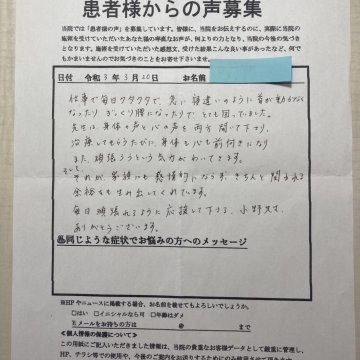 患者様からの声募集
当院では「患者様の声」を募集しています。皆様に、当院をお伝えするのに、実際に当院の
施術を受けていただいたあなた様の率直なお声が、何よりの力となり、当院の今後の気づき
となります。施術を受けていただいた感想文、受けた結果こんな良い事があったなど、何で
もかまいませんのでお気づきのことをお寄せ下さいませ。
日付 令和3年3月20日 お名前
仕事で毎日クタクタで、急に寝違いのように首が動かなく
なったり、ぎっくり腰になったりで とても困っていました。
先生は、身体の声と心の声を両方聞いて下さり、
治療してもらうたびに、身体も心も前向きになり
また、頑張ろうという気力がわいてきます。
そして
それが、家族にも感情的にならず、きちんと関われる
余裕も生み出してくれています。
毎日頑張れるように応援して下さる、小野先生、
ありがとうございます。
㊟同じような症状でお悩みの方へのメッセージ
※HPやニュースに掲載する場合、お名前を載せてもよろしいでしょうか。
□はい □イニシャルなら可 □年齢はダメ
Eメールをお持ちの方は @ まで
≪個人情報の保護について≫
この用紙にご記入いただきました情報は、当院の貴重なお客様データとして厳重に管理し、
HP、チラシ等での使用や、今後のご案内をお送りするためにのみ